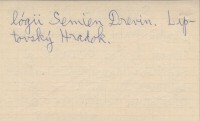 lógii Semien Drevín. Lip-
tovský Hrádok.